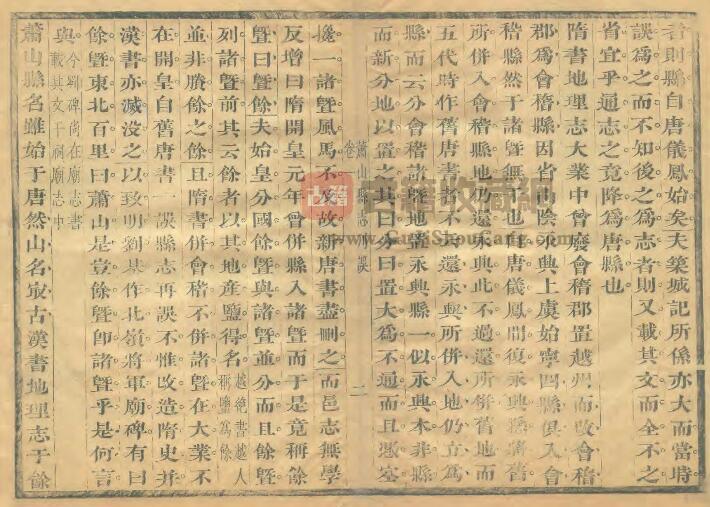 君則縣自唐儀鳳始矣夫築城記所係亦大而當時
誤爲之而不知後之爲志者則又載其文而全不之
省宜乎通志之竟降爲唐縣也
隋書地理志大業中曾廢會稽郡置越州而改會稽
郡爲會稽縣因省山陰永興上虞始寧四縣俱入會
稽縣然于諸暨無與也唐儀鳳間復永興縣將舊
所併入會稽縣地仍還永興此不過還所併舊地而
五代時作舊唐書者不曰還永興所併入地仍立爲
縣而云分會稽諸暨地置永興縣一似永興本非縣
而新分地以置之其曰分曰置大爲不通而且憑空
蕭山縣志刊誤
卷
二
攙一諸暨風馬不及故新唐書盡刪之而邑志無學
反增曰隋開皇元年曾併縣入諸暨而于是竟稱餘
暨曰暨餘夫始皇分國餘暨與諸暨並分而且餘暨
列諸暨前其云餘者以其地產鹽得名越絕書越人稱鹽爲餘
並非賸餘之餘且隋書併會稽不併諸暨在大業不
在開皇自舊唐書一誤縣志再誤不惟改造隋史并
漢書亦滅沒之以致明劉基作北嶺將軍廟碑有曰
餘暨東北百里曰蕭山是豈餘暨卽諸暨乎是何言
與今劉碑尚在廟志書載其文于祠廟志中
蕭山縣名雖始于唐然山名㝡古漢書地理志于餘
古籍
古籍收藏網
www.GuJiShouCang.com